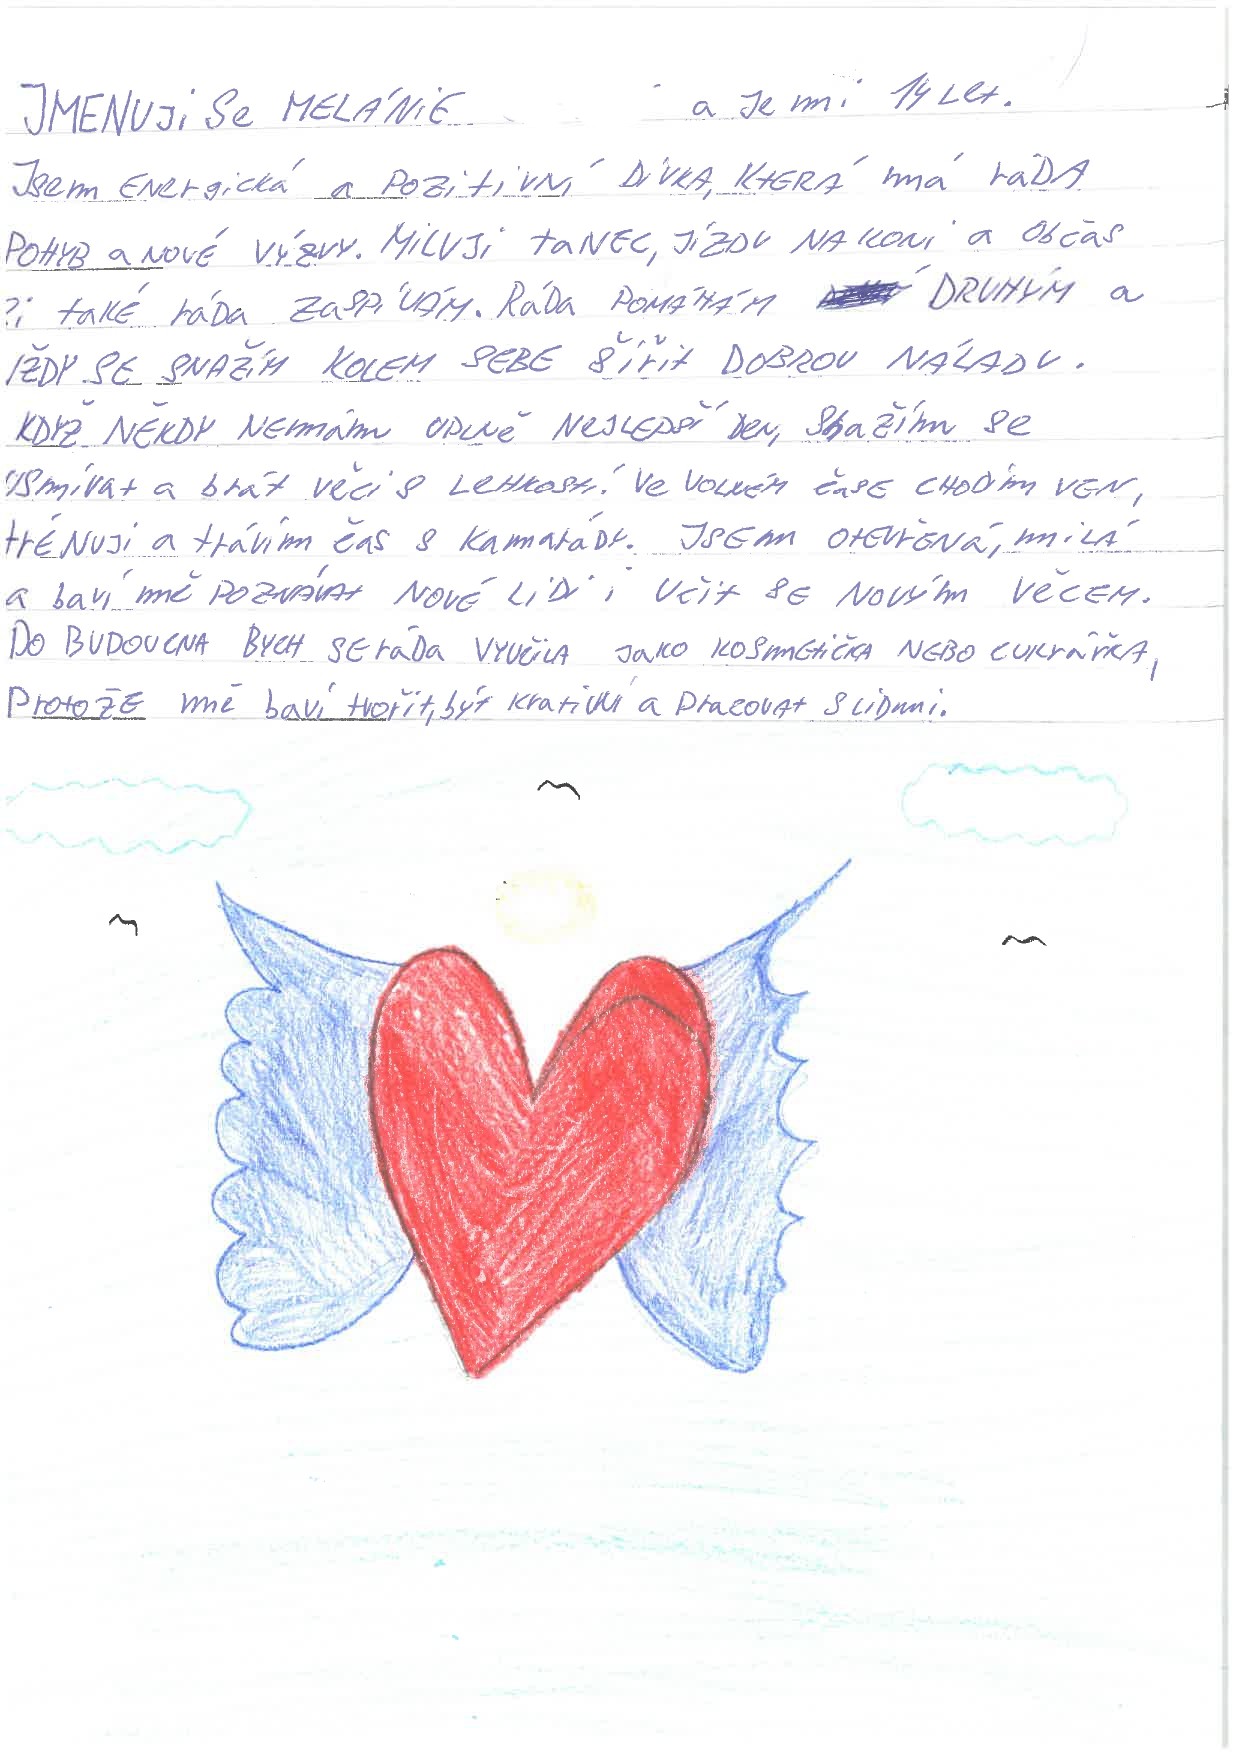 JMENUJi Se MELÁNiE a Je mi 14 Let.
Jsem ENergická a POZitiVNí DíVKA, KTERÁ má ráDA
POHYB a NOVÉ VÝZVY. MiLUJi taNEC, JíZDU NA KONi a OBčas
i také ráDa ZaSPíVÁM. RáDa POMÁHÁM DRUHÝM a
ŽDY SE SNAŽíM KOLEM SEBE ŠíŘit DOBROU NÁLADU.
KDYŽ NĚKDY NEmám UPLNě NEJLEPŠí DeN, SNažím Se
USmívat a brát VěCi S LEHKOSTí. Ve VOLNÉM časE CHODím VEN,
trÉNUJi a trávím čas S KamaráDY. JSEm OtEVřENÁ, miLÁ
a baví mě POZNÁVAt NOVÉ LiDi i Učit SE NOVým VĚCEM.
DO BUDOUCNA BYCH SE ráDa VYUČiLA JAKO KOSmEtičKA NEBO CUKrářKA,
PrOtOŽE mě baví tvořit, být Krativní a PracOVAt S LiDmi.